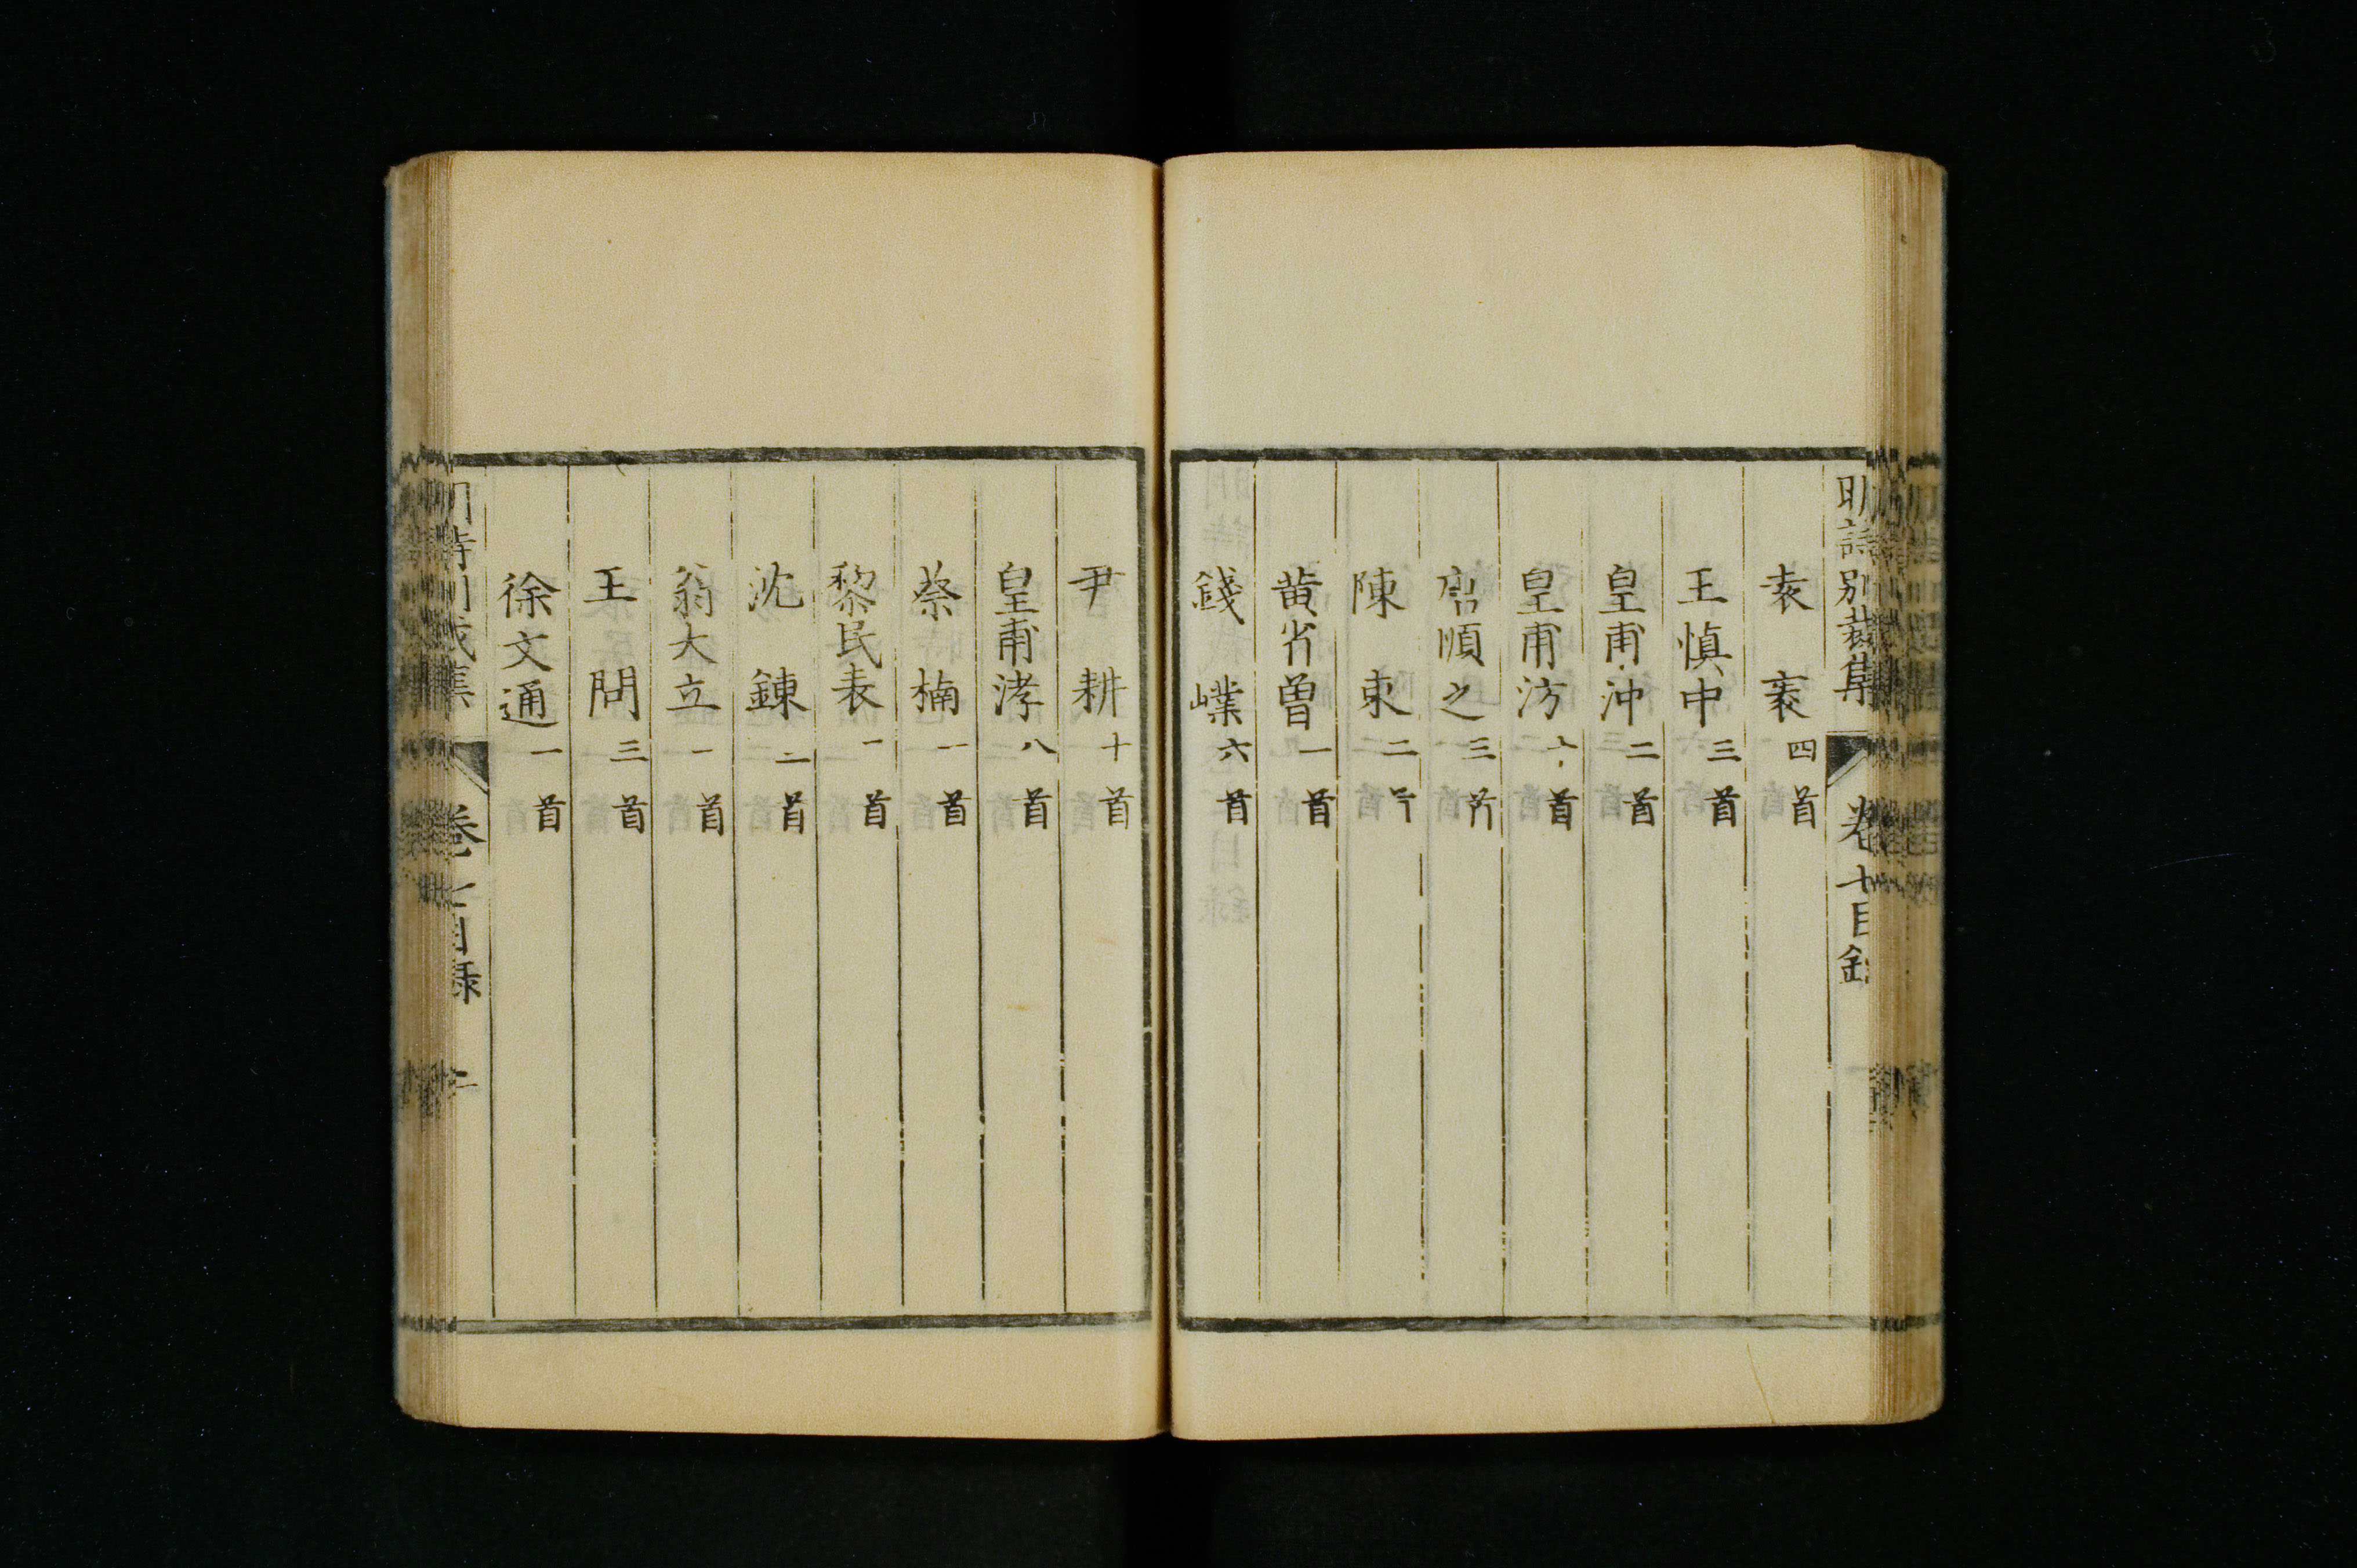 明詩別裁集 卷七目錄
袁袠四首
王慎中三首
皇甫沖二首
皇甫汸六首
唐順之三首
陳束二首
黃省曾一首
錢嶫六首
尹耕十首
皇甫涍八首
蔡楠一首
黎民表一首
沈鍊二首
翁大立一首
王問三首
徐文通一首
明詩別裁集 卷七目錄 二